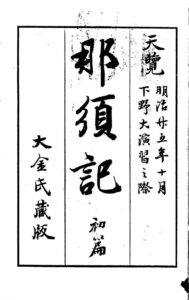 天覽
明治廿五年十月
下野大演習之際
那須記
初篇
大金氏藏版